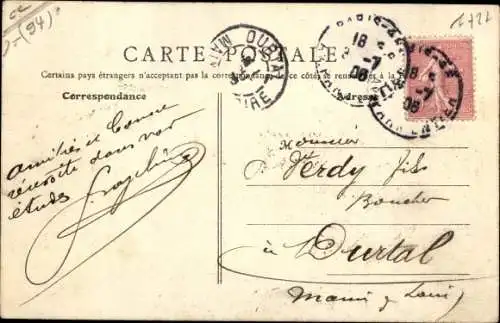 CARTE POSTALE
Certains pays étrangers n'acceptant pas la correspondance de ce côté se renseigner à la
Correspondance
Adresse
Amitiés et bonne
réussite dans vos
études
Monsieur
Verdy fils
Boucher
à Durtal
Maine & Loire
DURTAL
MAINE
LOIRE
PARIS
18
7
06
18
7
06
(94)